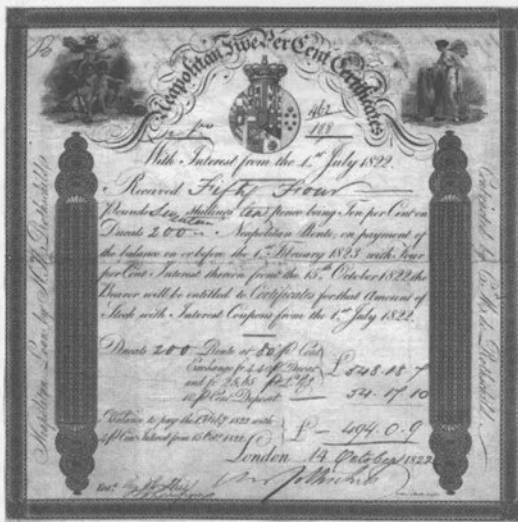 Neapolitan Five Per Cent Certificates
With Interest from the 1st July 1822.
Received Fifty Four
Pounds Seventeen Shillings ten pence being Ten per Cent on
Ducats 200 Neapolitan Rente; on payment of
the balance on or before the 1st February 1823 with Four
per Cent Interest thereon from the 15th October 1822 the
Bearer will be entitled to Certificates for that Amount of
Stock with Interest Coupons from the 1st July 1822.
Ducats 200 Rente at 80 pr Cent
Exchange fr 4.40 pr Ducat
and fr 25.65 pr £ Stg } £ 548.18.7
10 pr Cent Deposit 54.17.10
Balance to pay the 1 Feby 1823 with
4 pr Cent Interest from 15 Octr 1822 } £ 494.0.9
London 14 October 1822
Entd.
Neapolitan Loan by N. M. Rothschild
Contracted by N. M. Rothschild